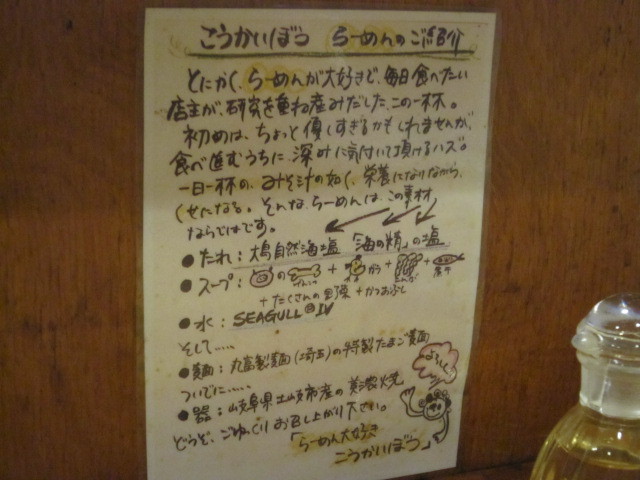 こうかいぼう らーめんのご紹介
とにかく、らーめんが大好きで、毎日食べたい
店主が、研究を重ね産みだした、この一杯。
初めは、ちょっと優しすぎるかもしれませんが、
食べ進むうちに、深みに気付いて頂けるハズ。
一日一杯の、みそ汁の如く、栄養になりながら、
くせになる。そんな、らーめんは、この素材
ならではです。
●たれ：大島自然海塩「海の精」の塩
●スープ：の げんこつ + + + +
+たくさんの野菜+かつおぶし
●水：SEAGULL Ⅳ
そして.....
●麺：丸富製麺(埼玉)の特製たまご麺
ついでに.....
●器：岐阜県土岐市産の美濃焼
どうぞ、ごゆっくりお召し上がり下さい。
「らーめん大好き
こうかいぼう」